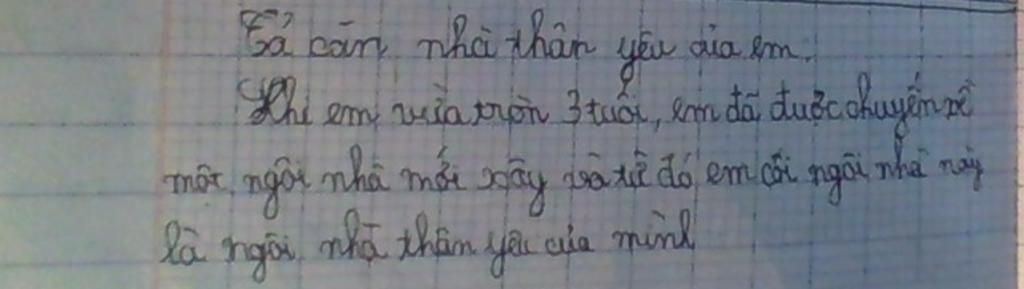 Tả căn nhà thân yêu của em.
Khi em vừa tròn 3 tuổi, em đã được chuyển về
một ngôi nhà mới xây và từ đó em coi ngôi nhà này
là ngôi nhà thân yêu của mình